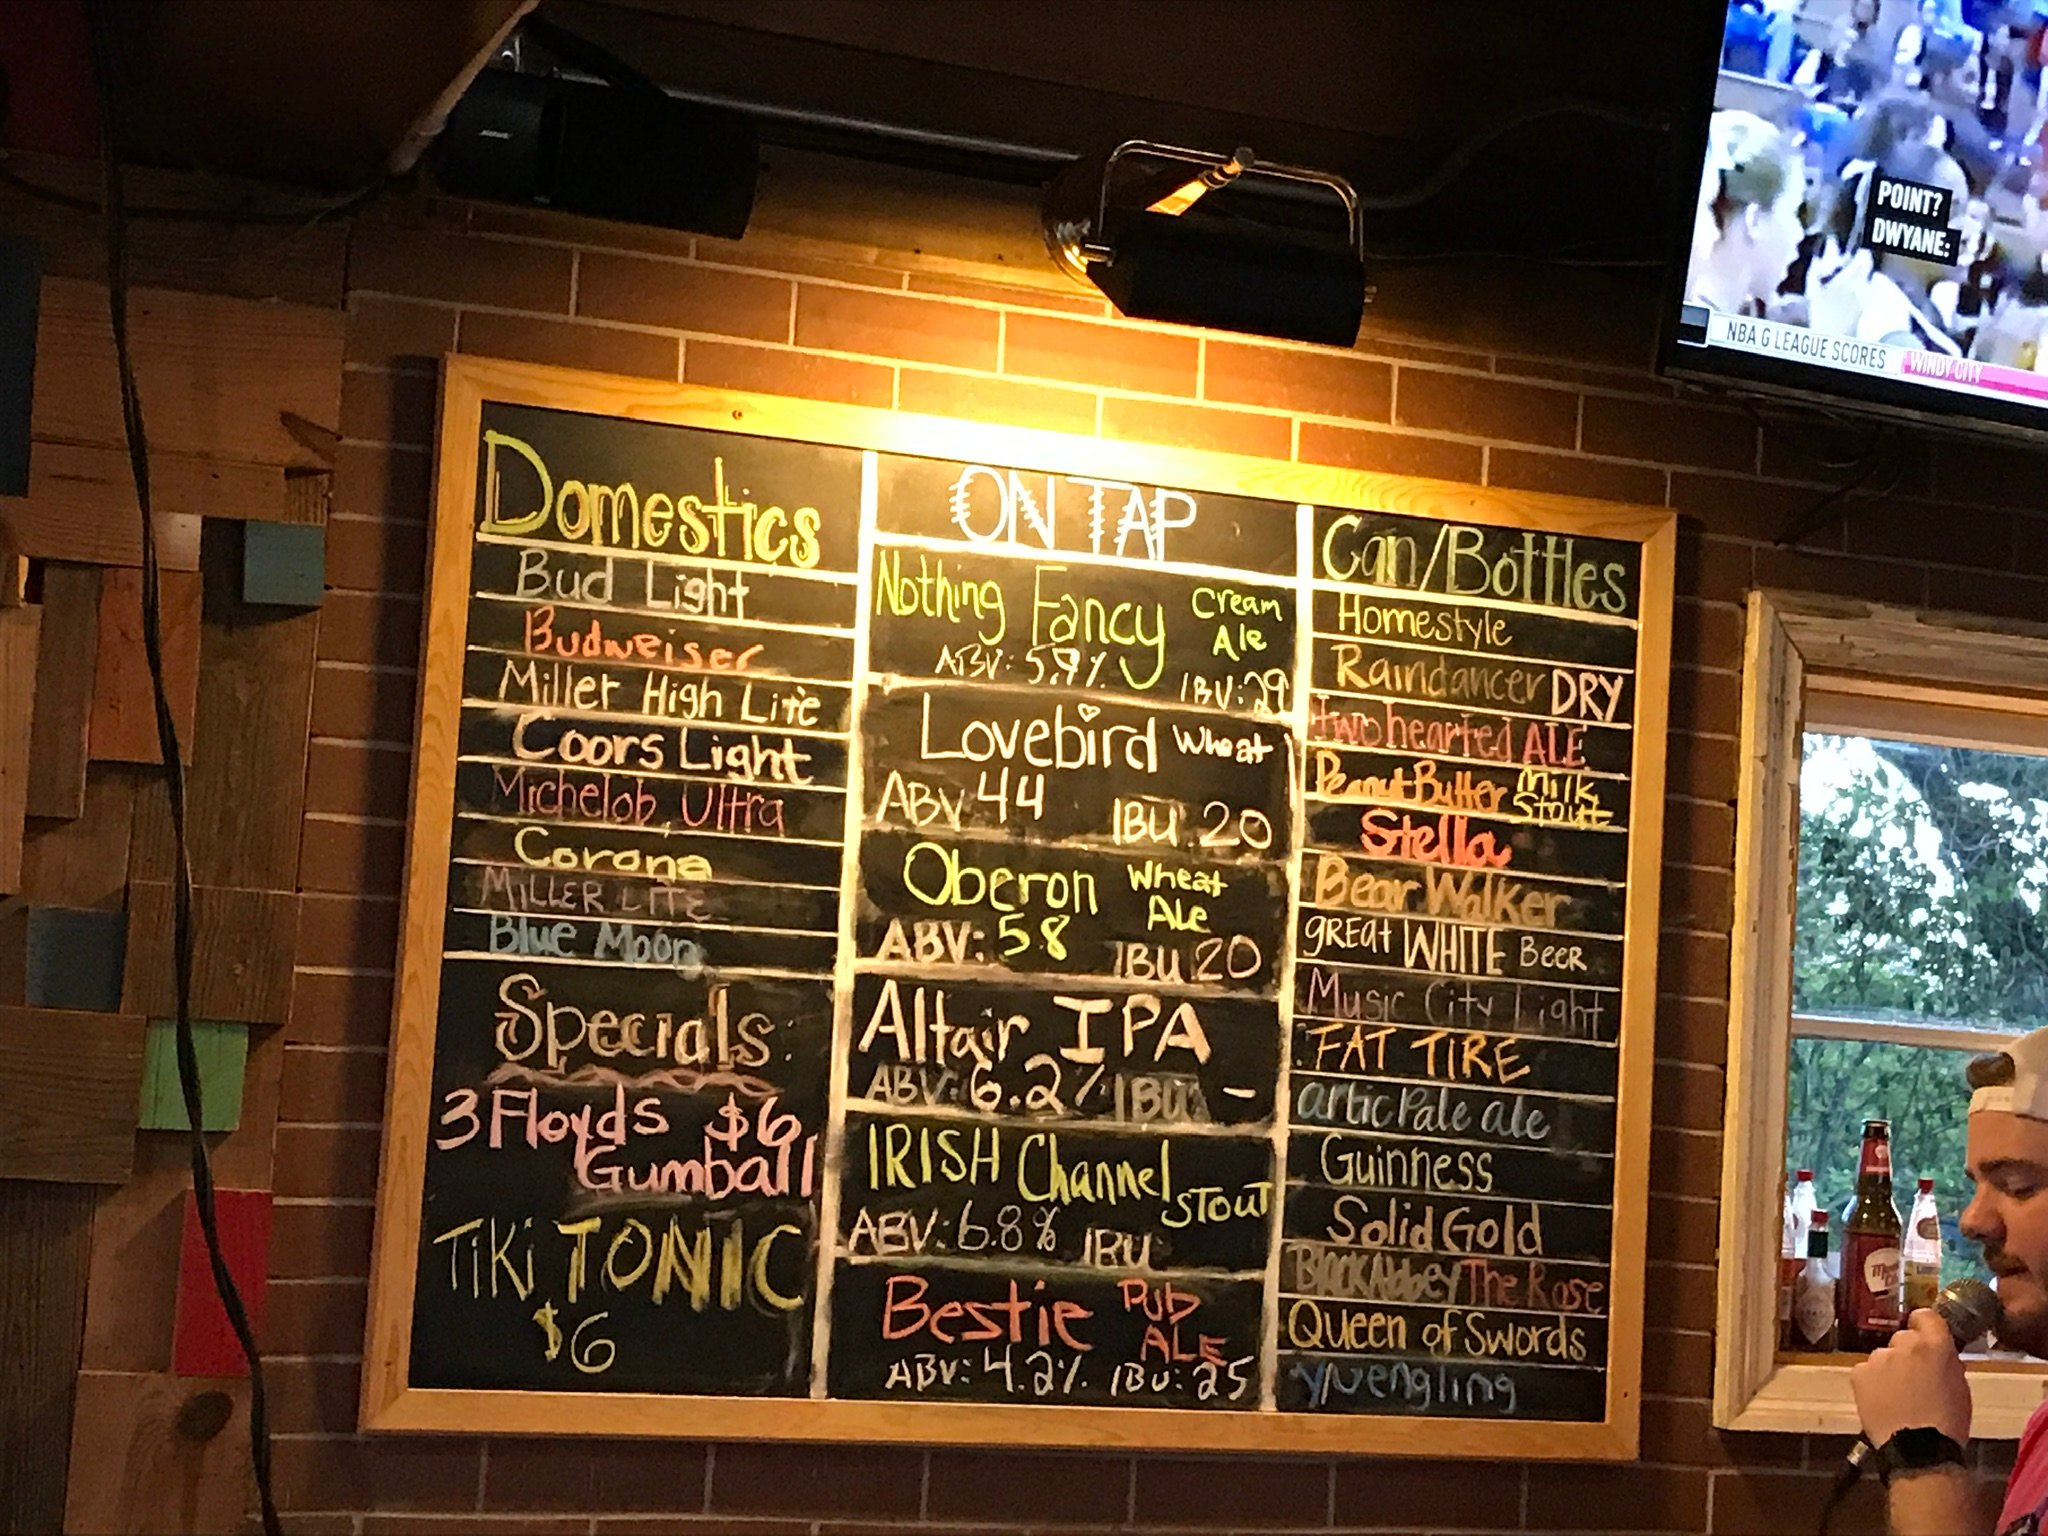 POINT?
DWYANE:
NBA G LEAGUE SCORES WINDY CITY
Domestics
Bud Light
Budweiser
Miller High Lite
Coors Light
Michelob Ultra
Corona
MILLER LITE
Blue Moon
Specials:
3 Floyds $6
Gumball
TiKi TONIC
$6
ON TAP
Nothing Fancy Cream
Ale
ABV: 5.9% IBU: 29
Lovebird Wheat
ABV 44 IBU 20
Oberon Wheat
Ale
ABV: 58 IBU 20
Altair IPA
ABV: 6.2% IBU -
IRISH Channel STOUT
ABV: 6.8% IBU
Bestie Pub
ALE
ABV: 4.2% IBU: 25
Can/Bottles
Homestyle
Raindancer DRY
two hearted ALE
Peanut Butter Milk
Stout
Stella
Bear Walker
gREat WHITE BeeR
Music City Light
FAT TIRE
artic Pale ale
Guinness
Solid Gold
Black Abbey The Rose
Queen of Swords
yuengling